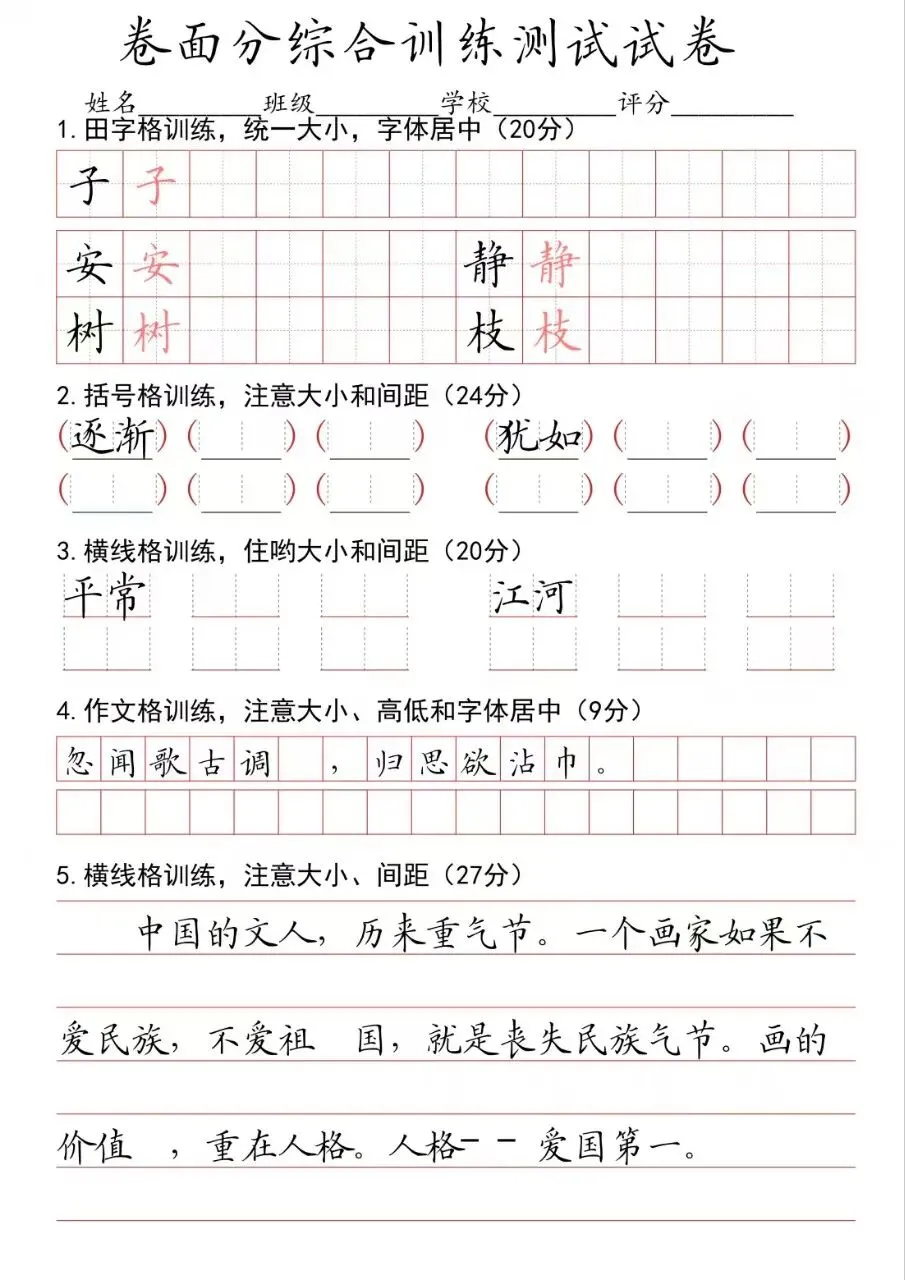 卷面分综合训练测试试卷
姓名_________班级_________学校_________评分_________
1. 田字格训练，统一大小，字体居中（20分）
子 子
安 安 静 静
树 树 枝 枝
2. 括号格训练，注意大小和间距（24分）
（逐渐）（ ）（ ） （犹如）（ ）（ ）
（ ）（ ）（ ） （ ）（ ）（ ）
3. 横线格训练，住哟大小和间距（20分）
平常 江河
4. 作文格训练，注意大小、高低和字体居中（9分）
忽闻歌古调 ，归思欲沾巾。
5. 横线格训练，注意大小、间距（27分）
中国的文人，历来重气节。一个画家如果不
爱民族，不爱祖 国，就是丧失民族气节。画的
价值 ，重在人格。人格-- 爱国第一。